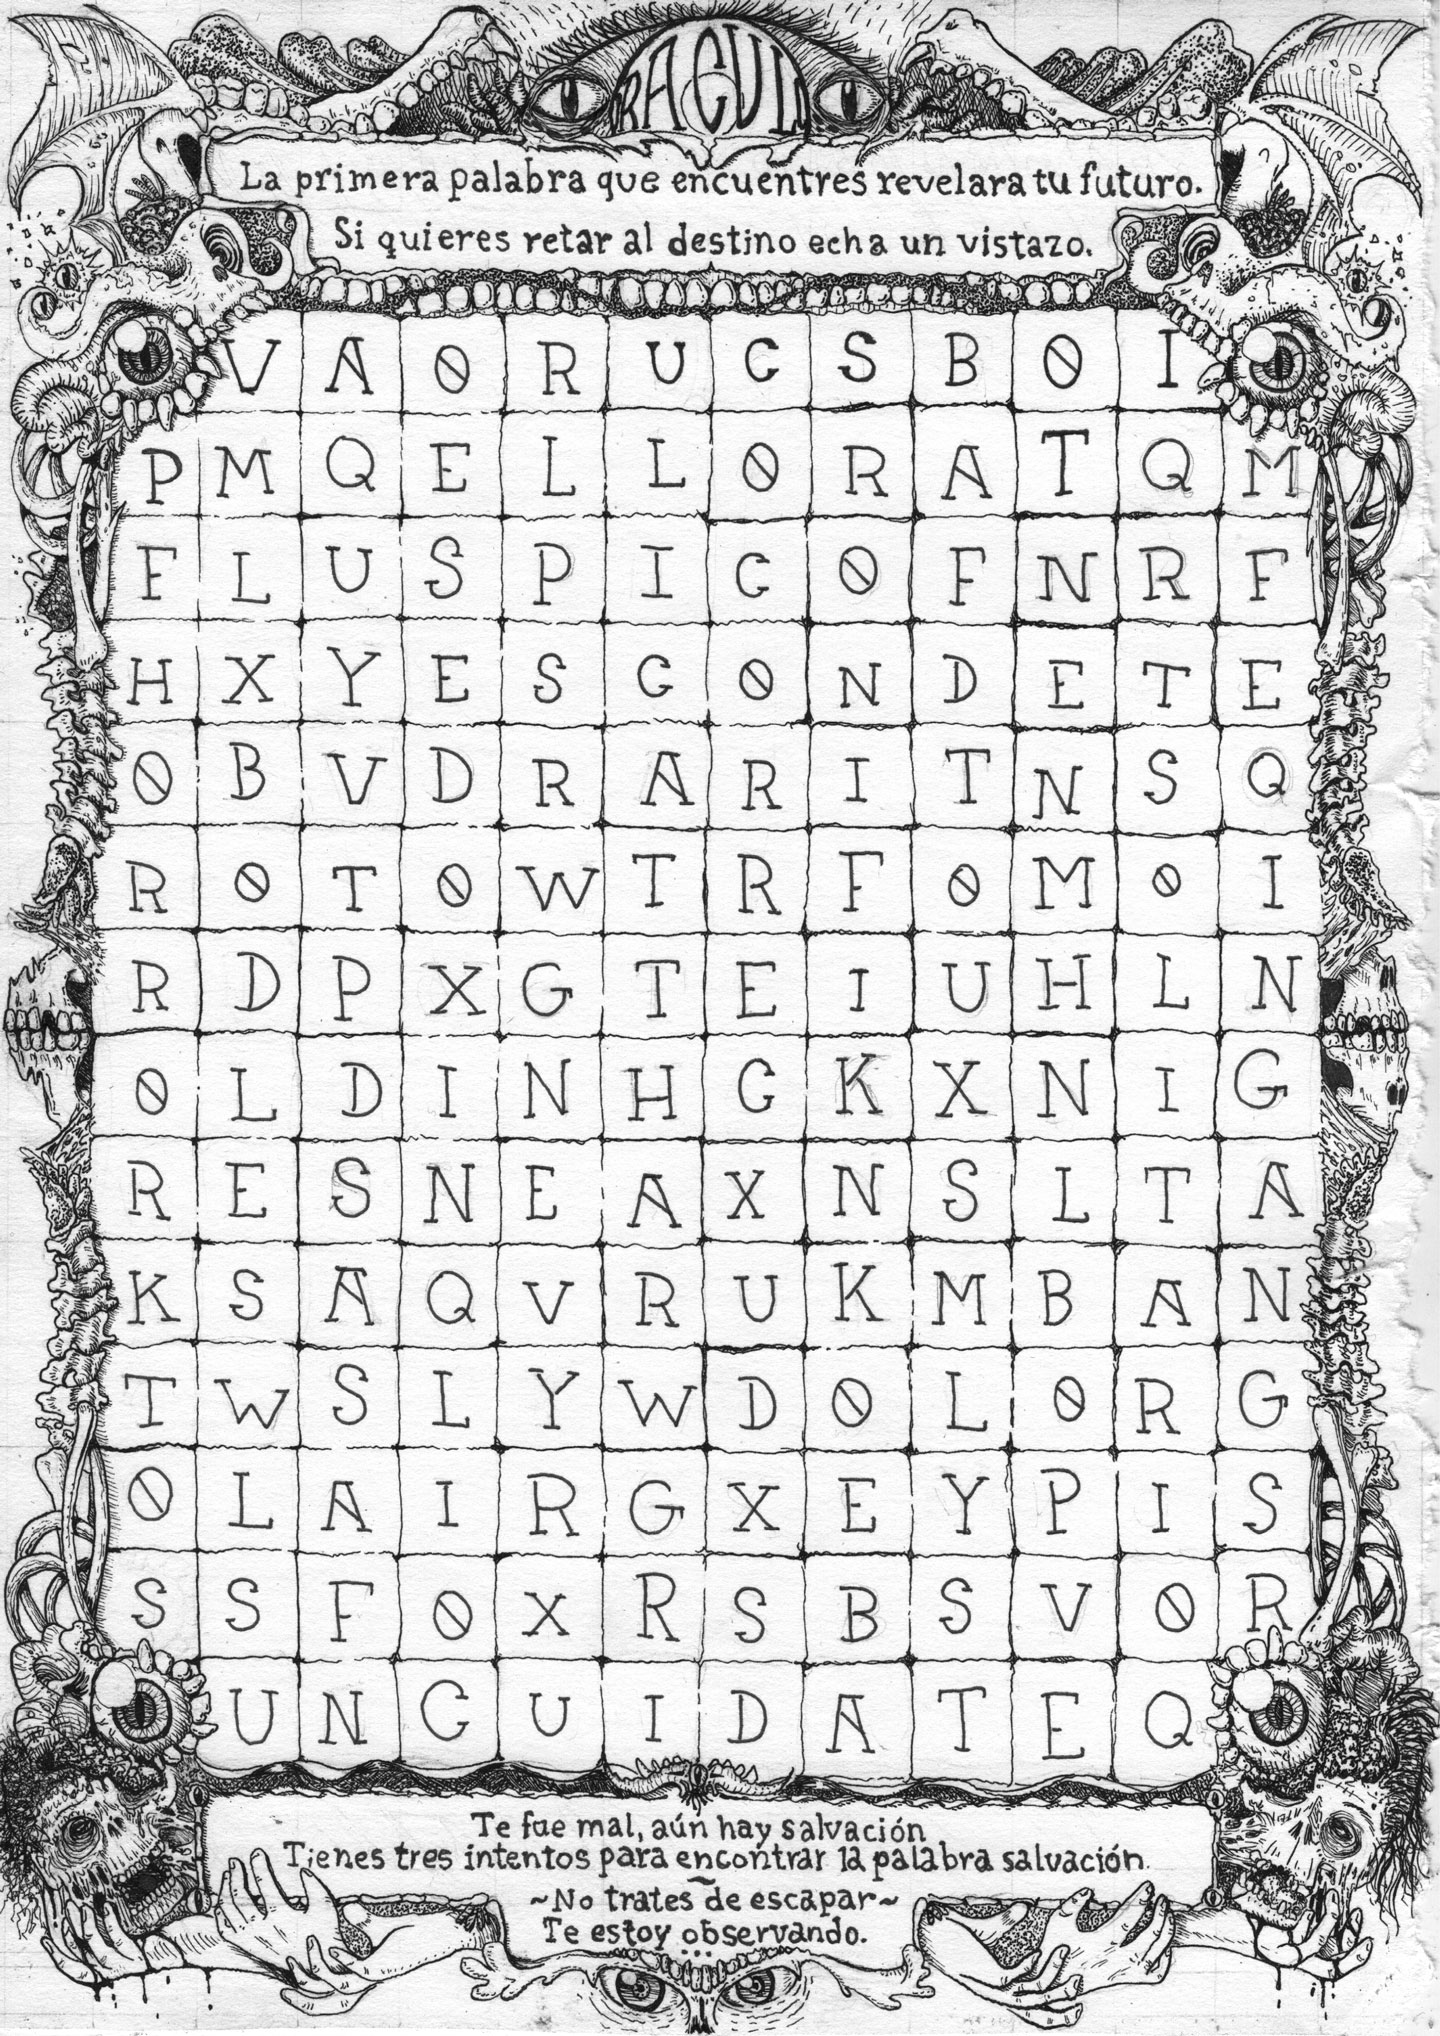 La primera palabra que encuentres revelara tu futuro.
Si quieres retar al destino echa un vistazo.
V A O R U C S B O I
P M Q E L L O R A T Q M
F L U S P I C O F N R F
H X Y E S C O N D E T E
O B V D R A R I T N S Q
R O T O W T R F O M O I
R D P X G T E I U H L N
O L D I N H C K X N I G
R E S N E A X N S L T A
K S A Q V R U K M B A N
T W S L Y W D O L O R G
O L A I R G X E Y P I S
S S F O X R S B S V O R
U N C U I D A T E Q
Te fue mal, aún hay salvación
Tienes tres intentos para encontrar la palabra salvación.
~No trates de escapar~
Te estoy observando.
...